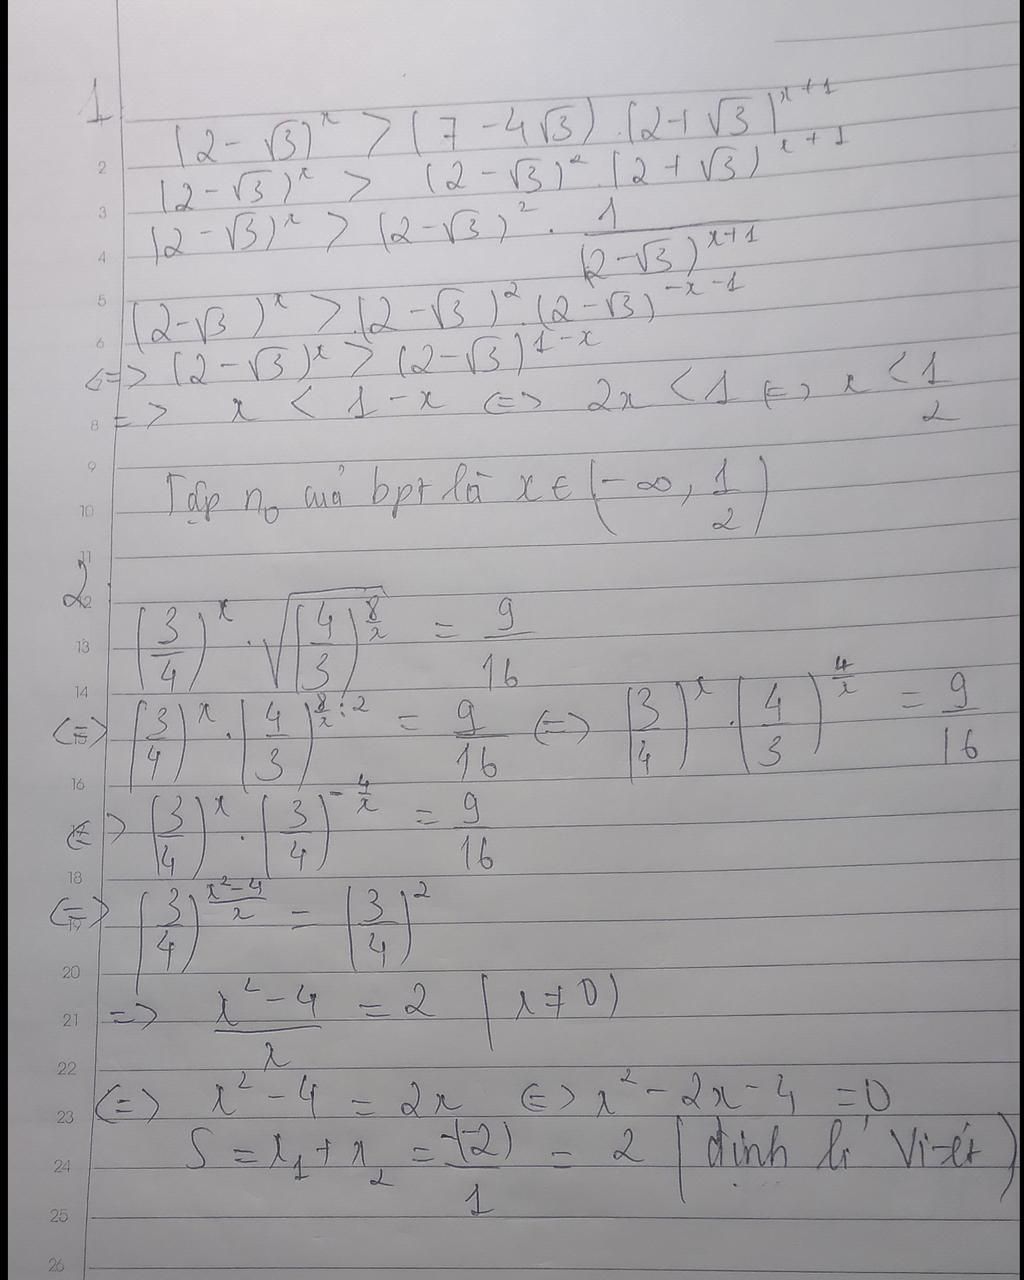 1
(2 - √3)^x > (7 - 4√3) . (2 + √3)^{x+1}
2 (2 - √3)^x > (2 - √3)^2 . (2 + √3)^{x+1}
3 (2 - √3)^x > (2 - √3)^2 . \frac{1}{(2 - √3)^{x+1}}
4
5 (2 - √3)^x > (2 - √3)^2 (2 - √3)^{-x-1}
6 <=> (2 - √3)^x > (2 - √3)^{1-x}
=> x < 1 - x <=> 2x < 1 <=> x < \frac{1}{2}
8
9 Tập n_0 của bpt là x ∈ (-∞, \frac{1}{2})
10
11
2
12 (\frac{3}{4})^x . \sqrt{(\frac{4}{3})^{\frac{8}{x}}} = \frac{9}{16}
13
14 <=> (\frac{3}{4})^x . (\frac{4}{3})^{\frac{8}{x} : 2} = \frac{9}{16} <=> (\frac{3}{4})^x . (\frac{4}{3})^{\frac{4}{x}} = \frac{9}{16}
15
16 <=> (\frac{3}{4})^x . (\frac{3}{4})^{-\frac{4}{x}} = \frac{9}{16}
17
18 <=> (\frac{3}{4})^{\frac{x^2-4}{x}} = (\frac{3}{4})^2
19
20
21 => \frac{x^2 - 4}{x} = 2 (x ≠ 0)
22
23 <=> x^2 - 4 = 2x <=> x^2 - 2x - 4 = 0
24 S = x_1 + x_2 = \frac{-(-2)}{1} = 2 (định lí Vi-ét)
25
26